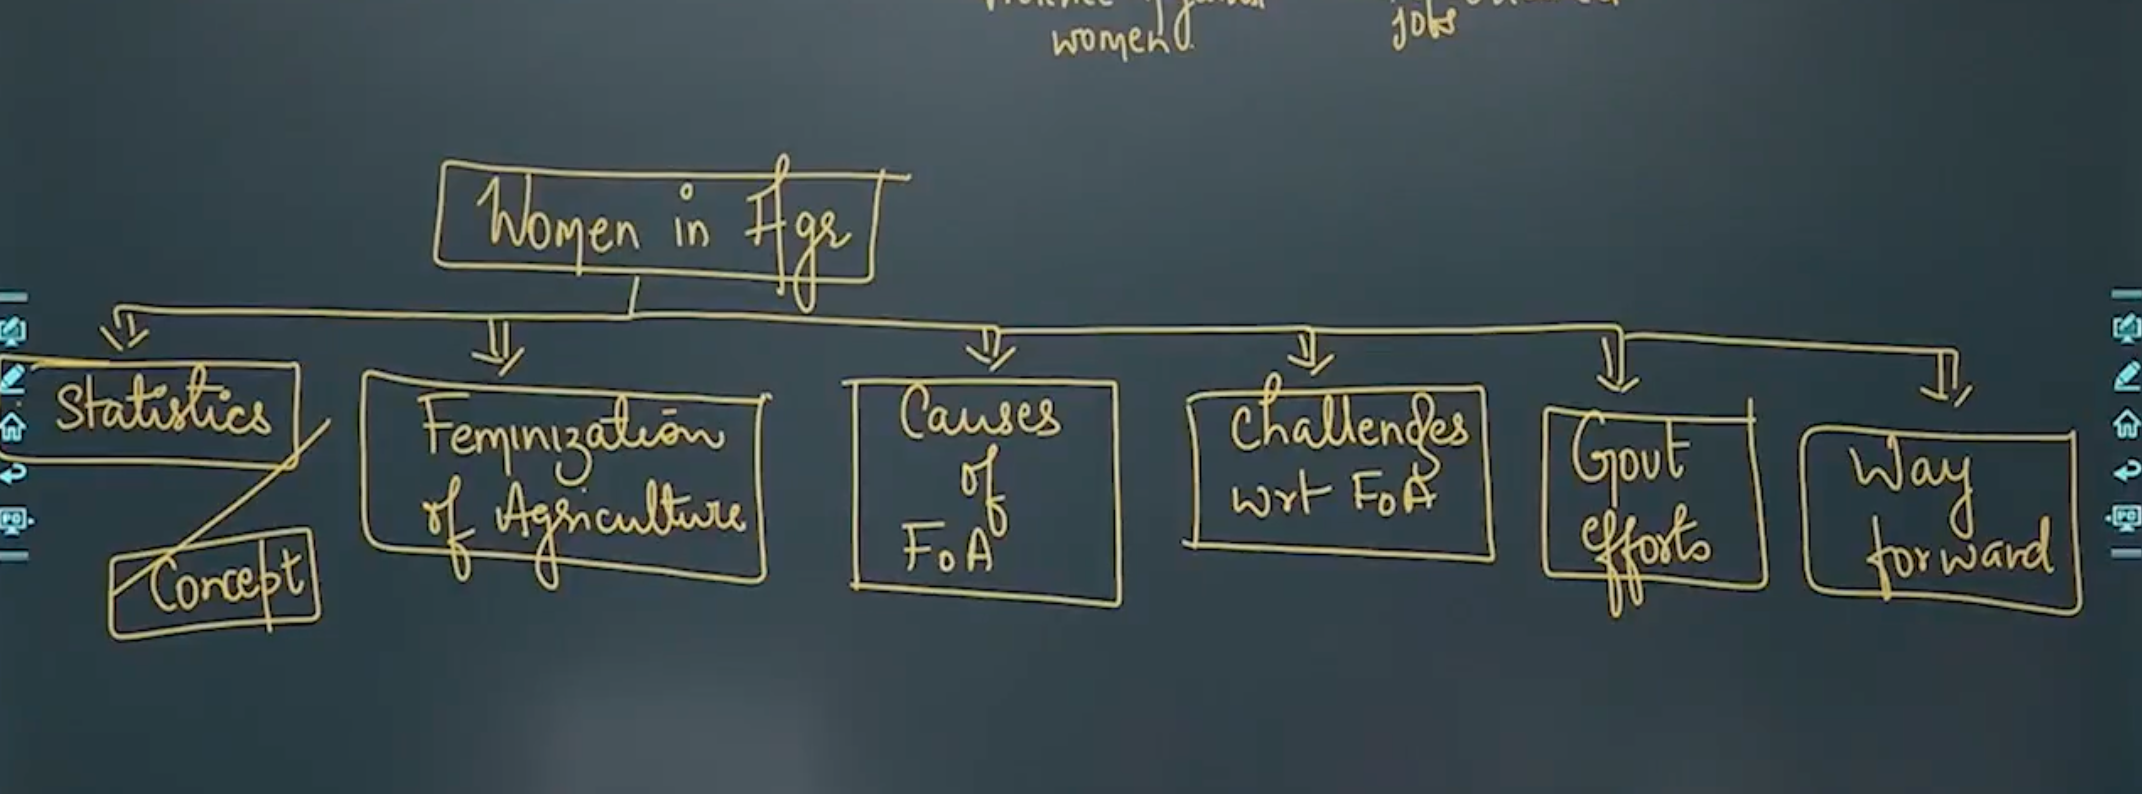 women
jobs
Women in Agr
Statistics
Feminization
of Agriculture
Causes
of
FoA
Challenges
wrt FoA
Govt
efforts
Way
forward
Concept